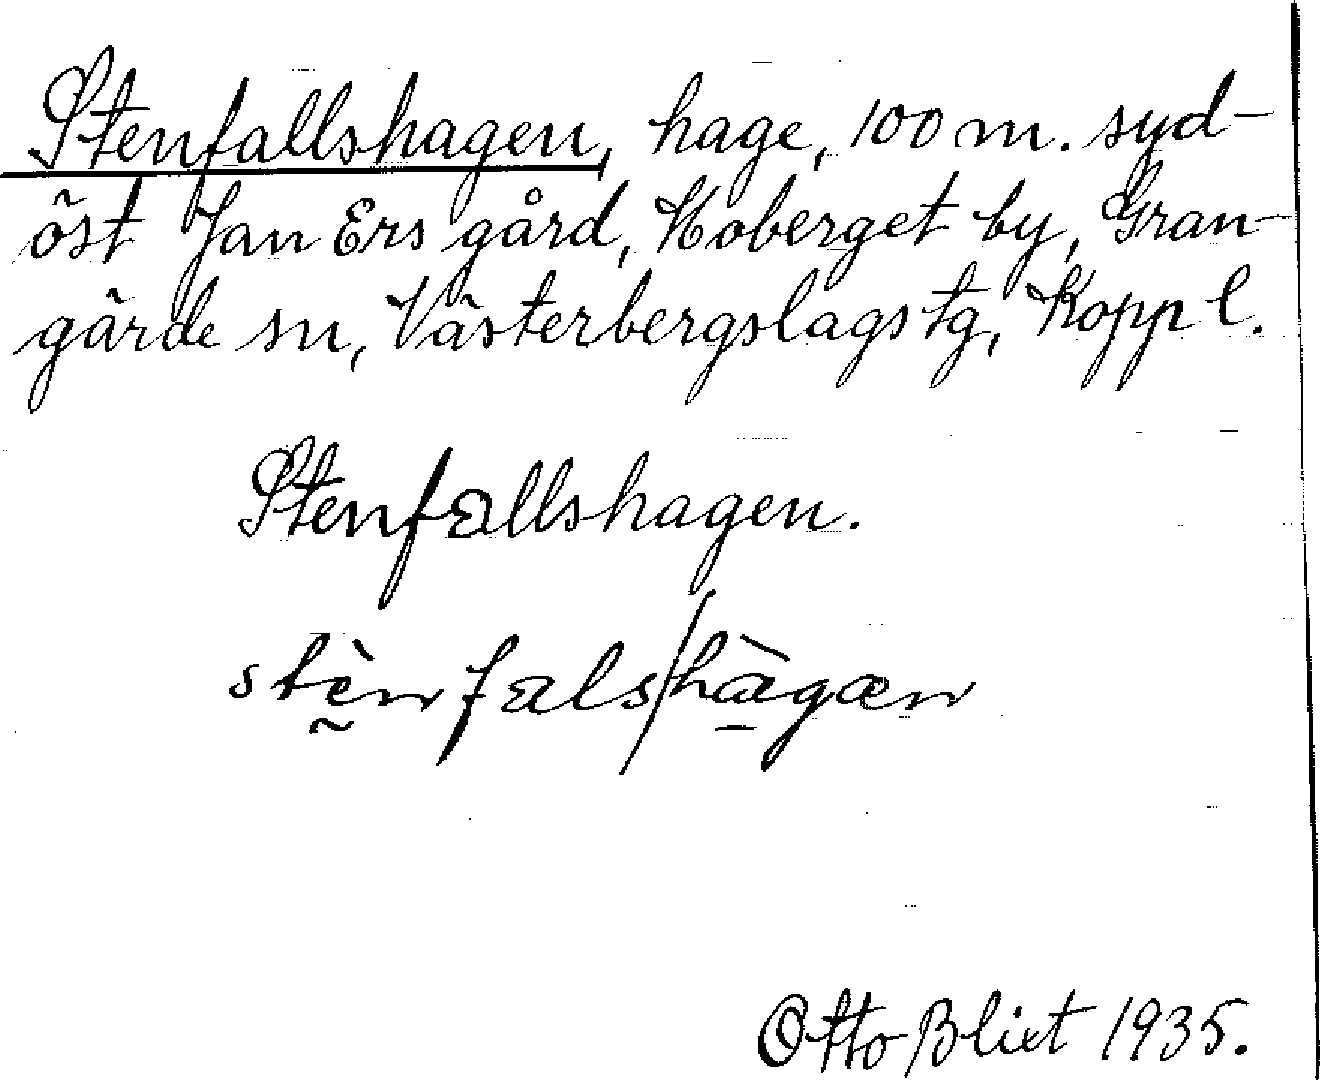 Stenfallshagen, hage, 100 m. syd-
öst Jan Ers gård, Koberget by, Gran-
gärde sn, Västerbergslags tg, Kopp l.
Stenfallshagen.
stḛ̀nfals/hà̱gæn
Otto Blixt 1935.